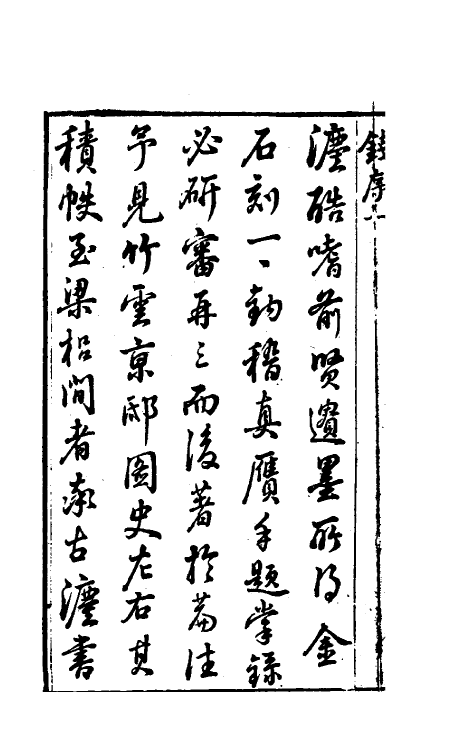 錢序一
瀍酷嗜前賢遺墨所得金
石刻一一鈎稽真贋手題掌錄
必研審再三而後著於篇往
予見竹雲京邸圖史左右其
積帙至梁梠間者率古瀍書